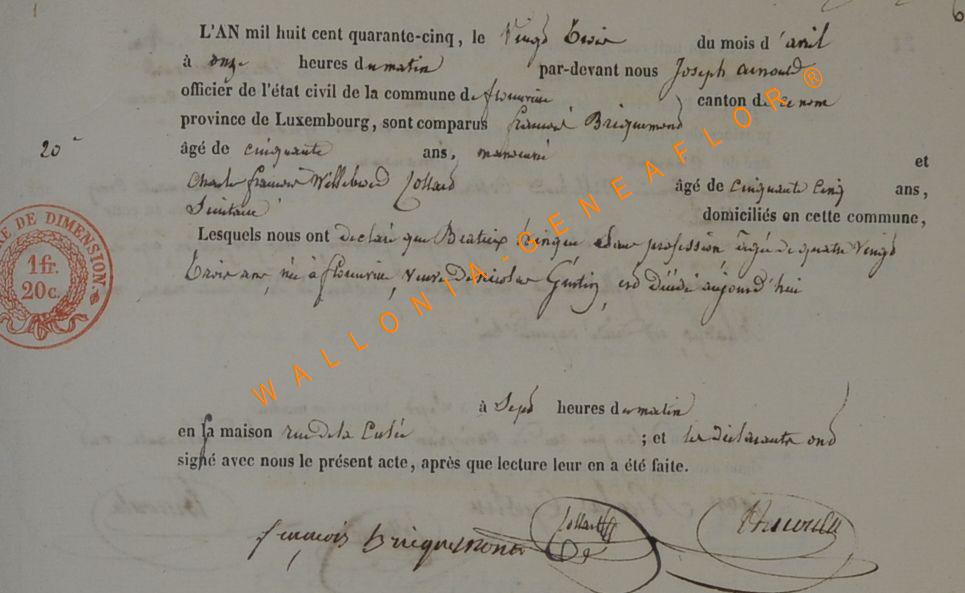 L'AN mil huit cent quarante-cinq, le Vingt trois du mois d'avril
à onze heures du matin par-devant nous Joseph Arnould
officier de l'état civil de la commune de florenville canton de ce nom
province de Luxembourg, sont comparus françois Bricquemont
20e
âgé de cinquante ans, manouvrier et
Charles françois Willebrord Collard âgé de cinquante cinq ans,
domiciliés en cette commune,
Lesquels nous ont déclaré que Beatrix sans profession, âgée de quatre vingt
trois ans, née à florenville, veuve de nicolas Gustin, est décédée aujourd'hui
à Sept heures du matin
en sa maison rue de la ; et les déclarants ont
signé avec nous le présent acte, après que lecture leur en a été faite.
françois bricquemont Collard Arnould
E DE DIMENSION.
1 fr.
20 c.
WALLONIA-GENEAFLOR®